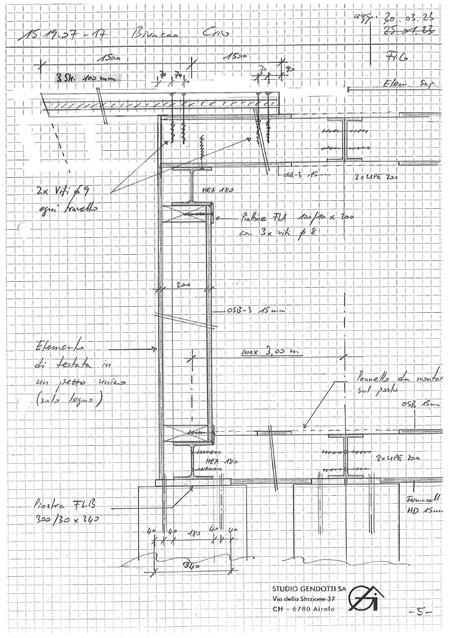 1519.07-17 Bivacco Crio
agg. 30.03.23
25.01.23
FILO
Elem. Sup.
1500
1500
3 Str. 100 mm
70
70
70
90
OSB-3 15
2x UPE 200
HEA 180
2x Viti φ9
ogni travetto
Piastre FLA 100/10 x 200
con 3x viti φ8
200
OSB-3 15 mm
Elemento
di testata in
un pezzo unico
(solo legno)
max 3,00 m
Pannello da montar
sul posto
OSB 15mm
HEA 180
2x UPE 200
Piastra FLB
300/30 x 340
Fermacell
HD 15mm
40
40
180
40
40
340
STUDIO GENDOTTI SA
Via della Stazione 37
CH - 6780 Airolo
-5-